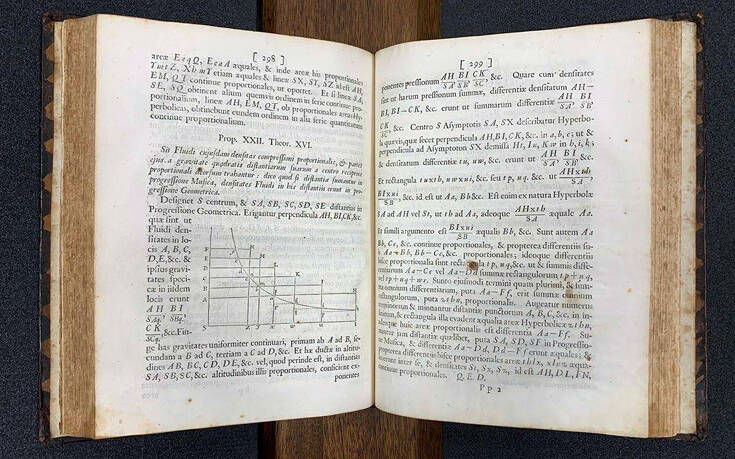 [ 298 ]
areæ EeqQ, EeaA æquales, & inde areæ his proportionales
TmtZ, XnmT etiam æquales & lineæ SX, ST, SZ id est AH,
EM, QT continue proportionales, ut oportet. Et si lineæ SA,
SE, SQ obtinent alium quemvis ordinem in serie continue pro-
portionalium, lineæ AH, EM, QT, ob proportionales areas Hy-
perbolicas, obtinebunt eundem ordinem in alia serie quantitatum
continue proportionalium.
Prop. XXII. Theor. XVI.
Sit Fluidi cujusdam densitas compressioni proportionalis, & partes
ejus a gravitate quadratis distantiarum suarum a centro reciproce
proportionali deorsum trahantur : dico quod si distantiæ sumantur in
progressione Musica, densitates Fluidi in his distantiis erunt in pro-
gressione Geometrica.
Designet S centrum, & SA, SB, SC, SD, SE distantias in
Progressione Geometrica. Erigantur perpendicula AH, BI, CK, &c.
quæ sint ut
Fluidi den-
sitates in lo-
cis A, B, C,
D, E, &c. &
ipsius gravi-
tates speci-
cæ in iisdem
locis erunt
AH BI
SAq. SBq.
CK
SCq. &c. Fin-
ge has gravitates uniformiter continuari, primam ab A ad B, se-
cundam a B ad C, tertiam a C ad D, &c. Et hæ ductæ in altitu-
dines AB, BC, CD, DE, &c. vel, quod perinde est, in distantias
SA, SB, SC, &c. altitudinibus illis proportionales, conficient ex-
ponentes
[ 299 ]
ponentes pressionum AH/SA, BI/SB, CK/SC, &c. Quare cum densitates
sint ut harum pressionum summæ, differentiæ densitatum AH—
BI, BI—CK, &c. erunt ut summarum differentiæ AH/SA, BI/SB,
CK/SC, &c. Centro S Asymptotis SA, SX describatur Hyperbo-
la quævis, quæ secet perpendicula AH, BI, CK, &c. in a, b, c; ut &
perpendicula ad Asymptoton SX demissa Ht, Iu, Kw in h, i, k;
& densitatum differentiæ tu, uw, &c. erunt ut AH/SA, BI/SB, &c.
Et rectangula tu×th, uw×ui, &c. seu tp, uq, &c. ut AH×th/SA,
BI×ui/SB, &c. id est ut Aa, Bb &c. Est enim ex natura Hyperbolæ
SA ad AH vel St, ut th ad Aa, adeoque AH×th/SA æquale Aa.
Et simili argumento est BI×ui/SB æqualis Bb, &c. Sunt autem Aa
Bb, Cc, &c. continue proportionales, & propterea differentiis su-
is Aa—Bb, Bb—Cc, &c. proportionales; ideoque differentiis
hisce proportionalia sunt rectangula tp, uq, &c. ut & summis diffe-
rentiarum Aa—Cc vel Aa—Dd summæ rectangulorum tp+uq,
vel tp+uq+wr. Sunto ejusmodi termini quam plurimi, & sum-
ma omnium differentiarum, puta Aa—Ff, erit summæ omnium
rectangulorum, puta zthn, proportionalis. Augeatur numerus
terminorum & minuantur distantiæ punctorum A, B, C, &c. in in-
finitum, & rectangula illa evadent æqualia areæ Hyperbolicæ zthn,
adeoque huic areæ proportionalis est differentia Aa—Ff. Su-
mantur jam distantiæ quælibet, puta SA, SD, SF in Progressio-
ne Musica, & differentiæ Aa—Dd, Dd—Ff erunt æquales; &
propterea differentiis hisce proportionales areæ thlx, xlnz æqua-
les erunt inter se, & densitates St, Sx, Sz, id est AH, DL, FN,
continue proportionales. Q. E. D.
Pp 2